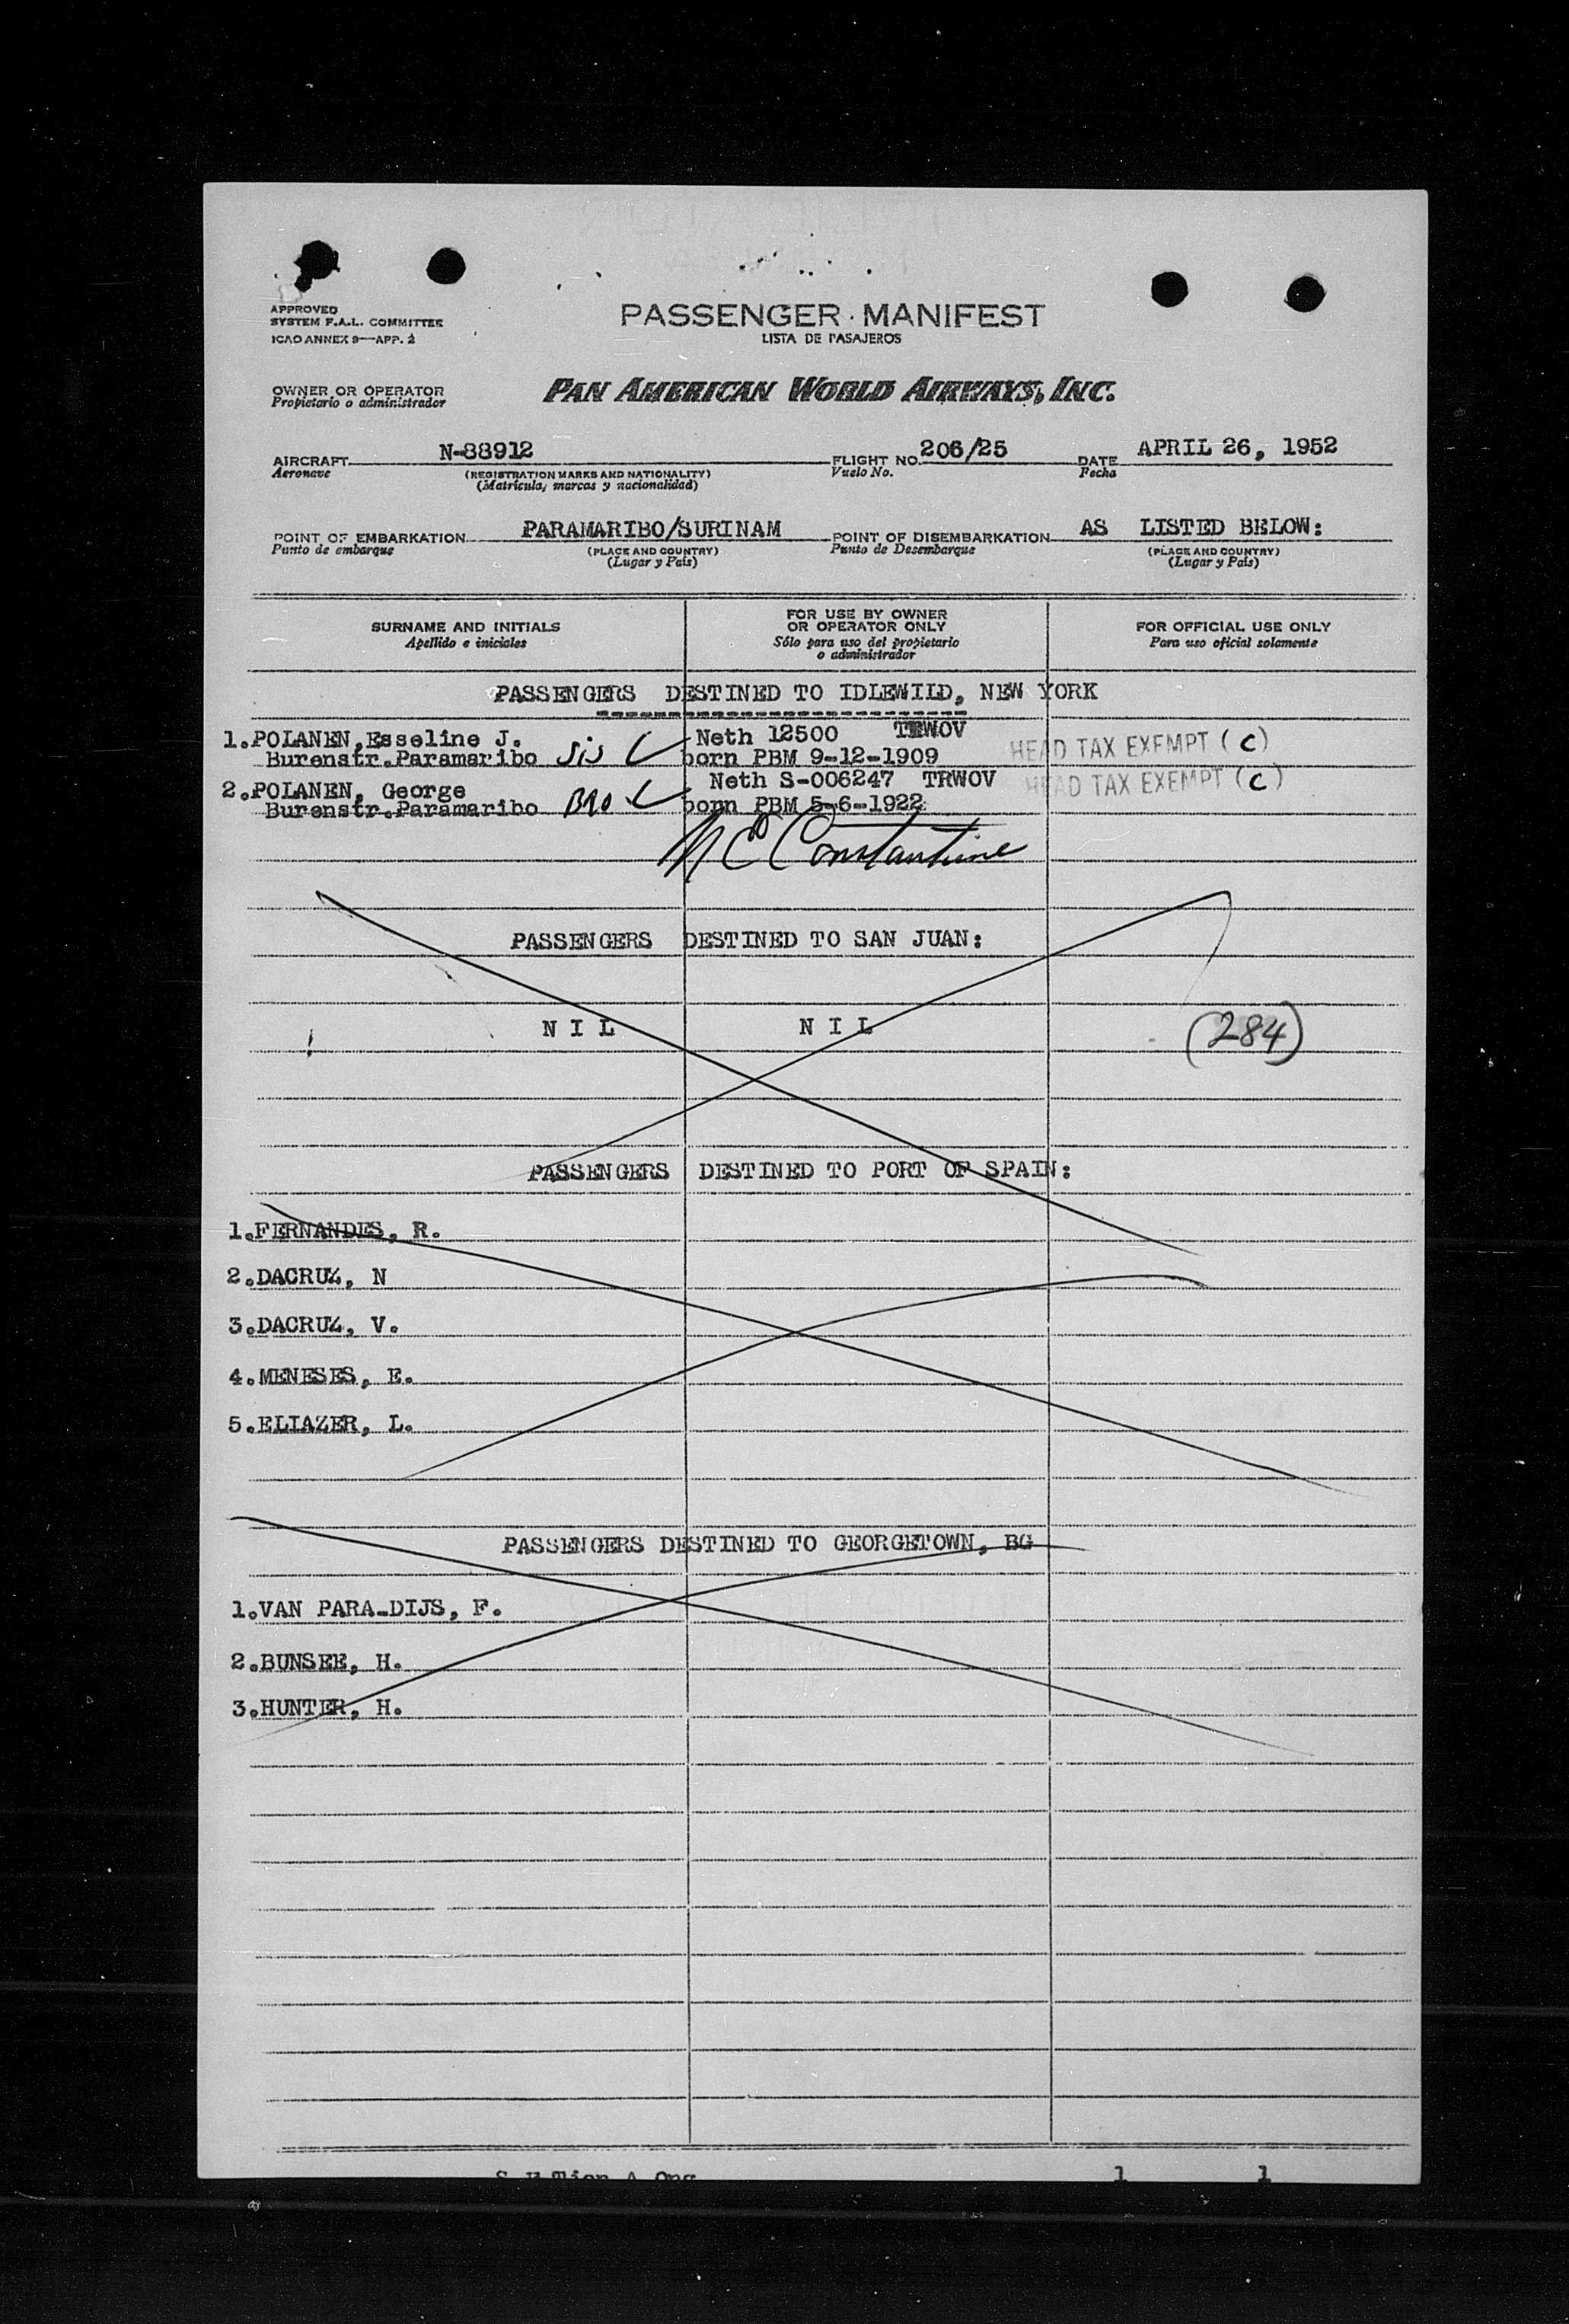 APPROVED
SYSTEM F.A.L. COMMITTEE
ICAO ANNEX 9—APP. 2
PASSENGER MANIFEST
LISTA DE PASAJEROS
OWNER OR OPERATOR
Propietario o administrador
PAN AMERICAN WORLD AIRWAYS, INC.
AIRCRAFT N-88912 FLIGHT NO. 206/25 DATE APRIL 26, 1952
Aeronave (REGISTRATION MARKS AND NATIONALITY) Vuelo No. Fecha
(Matrícula, marcas y nacionalidad)
POINT OF EMBARKATION PARAMARIBO/SURINAM POINT OF DISEMBARKATION AS LISTED BELOW:
Punto de embarque (PLACE AND COUNTRY) Punto de Desembarque (PLACE AND COUNTRY)
(Lugar y País) (Lugar y País)
SURNAME AND INITIALS
Apellido e iniciales
FOR USE BY OWNER
OR OPERATOR ONLY
Sólo para uso del propietario
o administrador
FOR OFFICIAL USE ONLY
Para uso oficial solamente
PASSENGERS DESTINED TO IDLEWILD, NEW YORK
1.POLANEN,Esseline J. Neth 12500 TRWOV HEAD TAX EXEMPT (C)
Burenstr.Paramaribo Sis born PBM 9-12-1909
2.POLANEN, George Neth S-006247 TRWOV HEAD TAX EXEMPT (C)
Burenstr.Paramaribo Bro born PBM 5-6-1922
N C Constantine
PASSENGERS DESTINED TO SAN JUAN:
N I L N I L (284)
PASSENGERS DESTINED TO PORT OF SPAIN:
1.FERNANDES, R.
2.DACRUZ, N
3.DACRUZ, V.
4.MENESES, E.
5.ELIAZER, L.
PASSENGERS DESTINED TO GEORGETOWN, BG
1.VAN PARA-DIJS, F.
2.BUNSEE, H.
3.HUNTER, H.
1 1